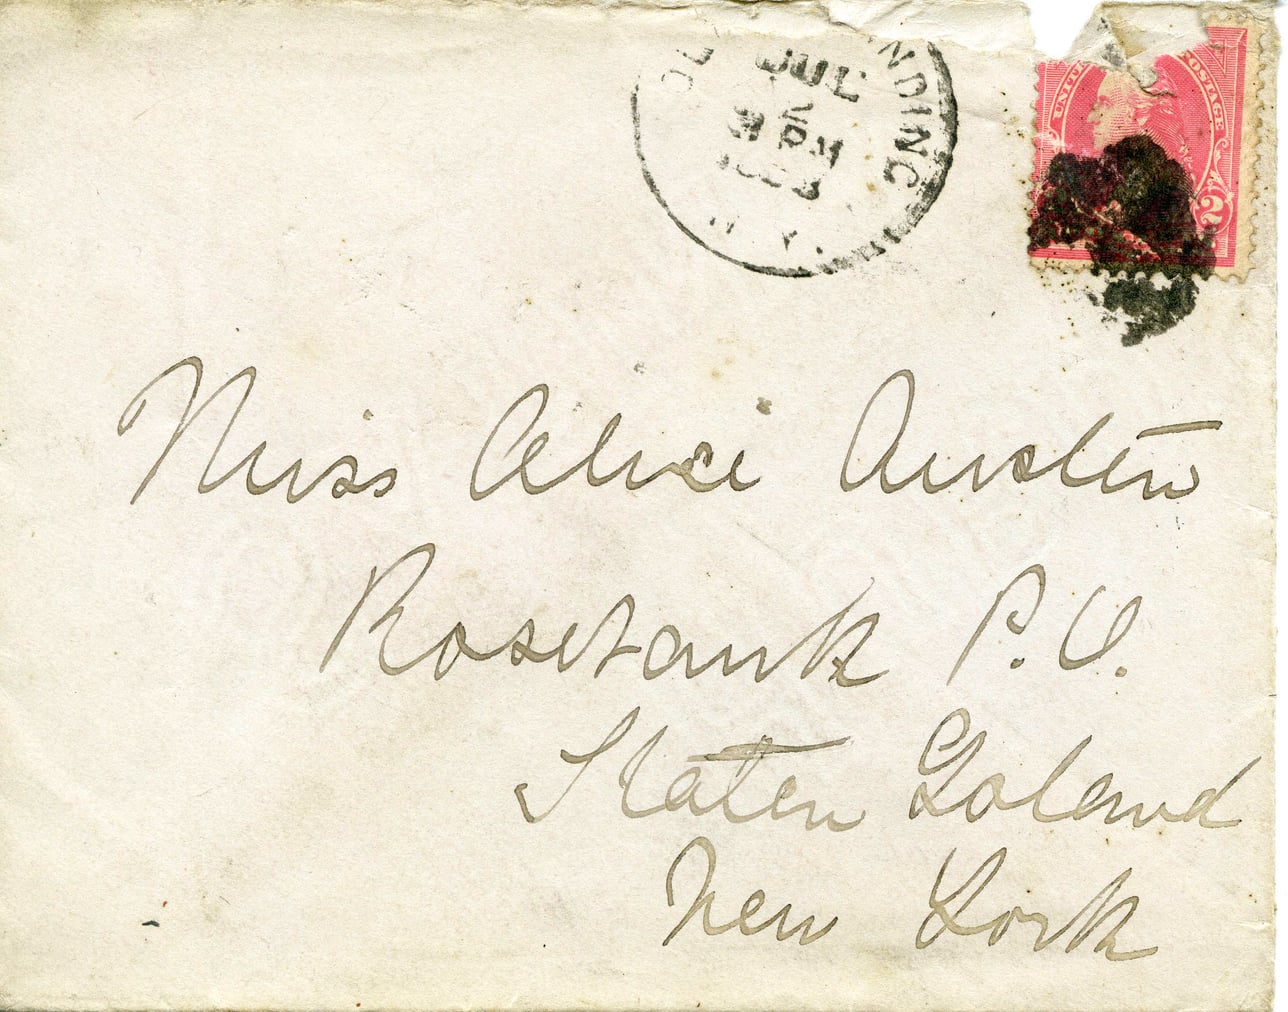 JUL
PM
N.Y.
UNITE
POSTAGE
2
Miss Alice Austen
Rosebank P.O.
Staten Island
New York